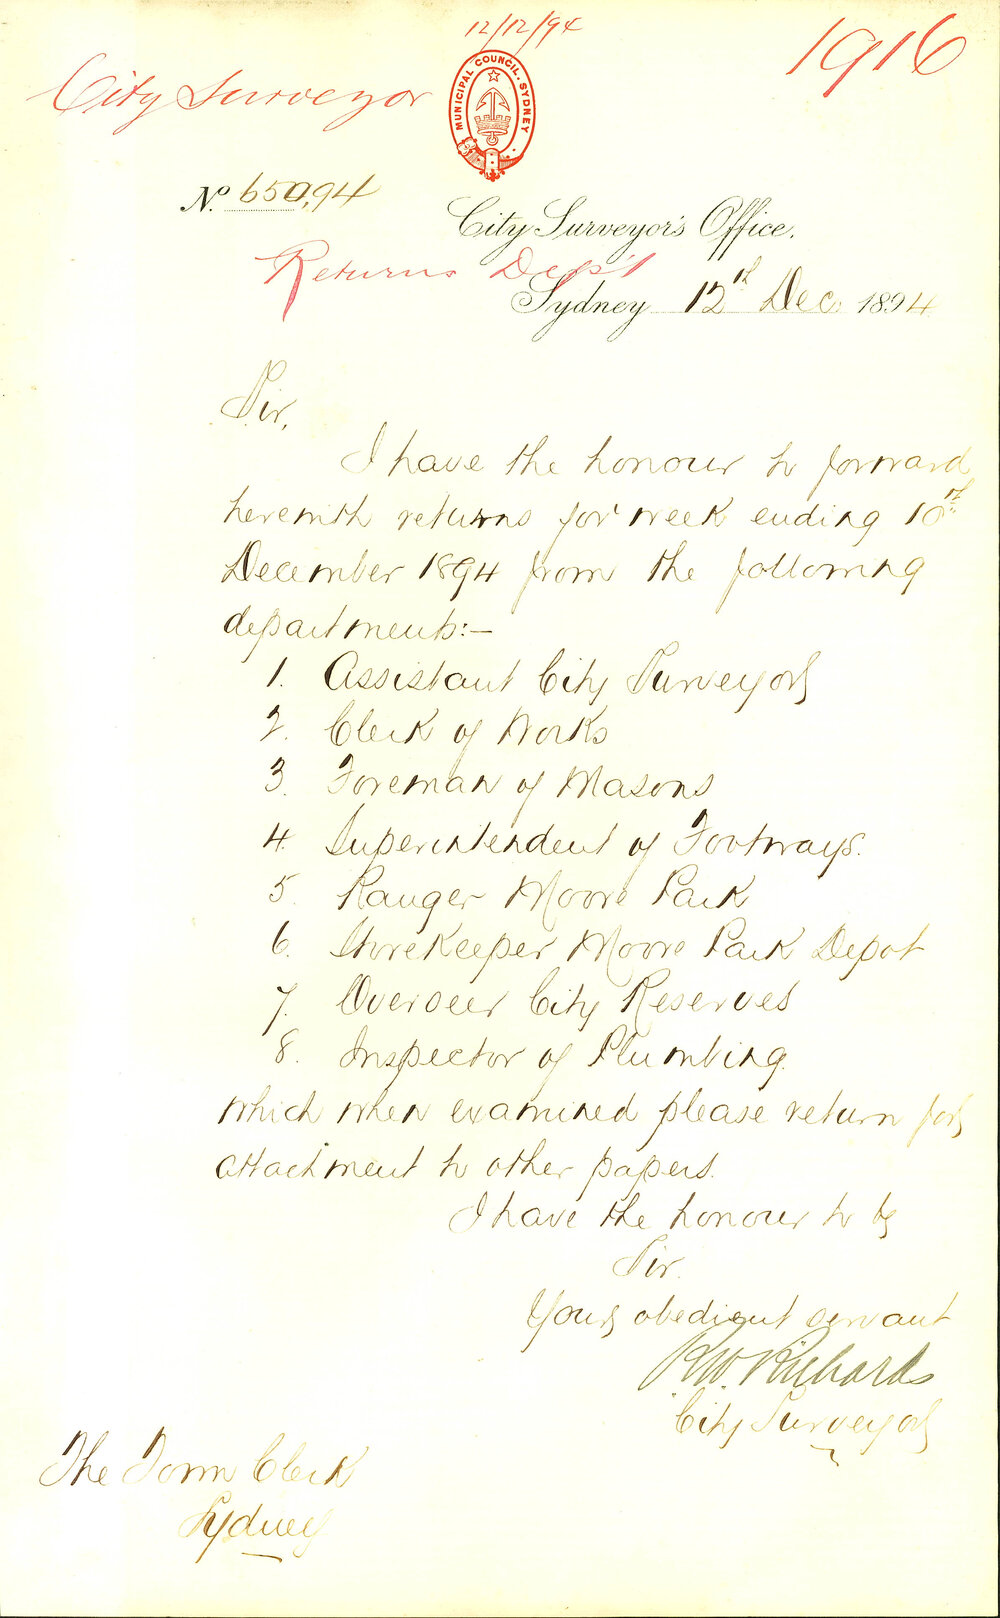 12/12/94
1916
City Surveyor
MUNICIPAL COUNCIL. SYDNEY
No. 650,94
City Surveyor's Office.
Returns Dep't
Sydney 12th Dec. 1894
Sir,
I have the honour to forward
herewith returns for week ending 10th
December 1894 from the following
departments:-
1. Assistant City Surveyor
2. Clerk of Works
3. Foreman of Masons
4. Superintendent of Footways.
5. Ranger Moore Park
6. Storekeeper Moore Park Depot
7. Overseer City Reserves
8. Inspector of Plumbing.
which when examined please return for
attachment to other papers.
I have the honour to be
Sir.
Your obedient servant
R.W. Richards
City Surveyor
The Town Clerk
Sydney